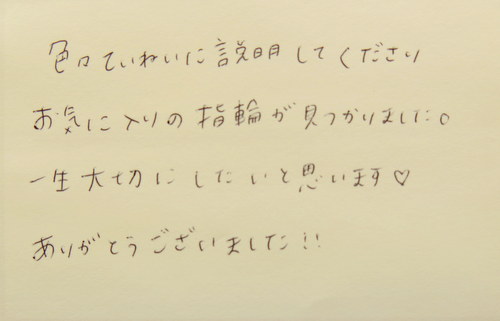 色々ていねいに説明してくださり
お気に入りの指輪が見つかりました。
一生大切にしたいと思います♡
ありがとうございました!!